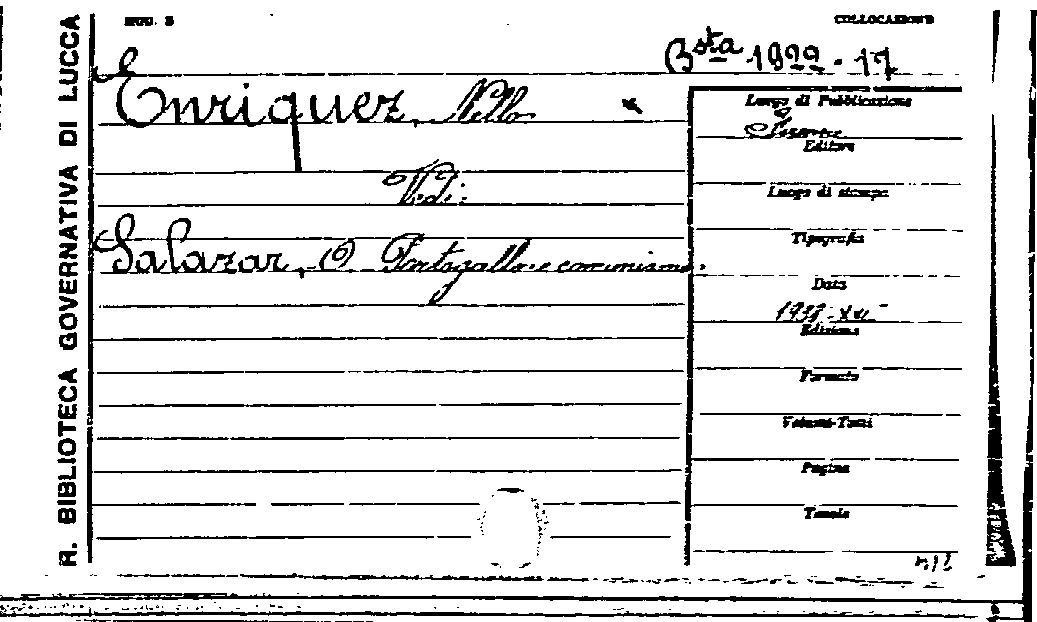 MOD. 3
COLLOCAZIONE
R. BIBLIOTECA GOVERNATIVA DI LUCCA
Bsta 1822 - 17
Enriquez, Nello
Vedi:
Salazar, O. Portogallo e comunismo.
Luogo di Pubblicazione
Firenze
Editore
Luogo di stampa
Tipografia
Data
1938-XVI
Edizione
Formato
Volumi-Tomi
Pagine
Tavole